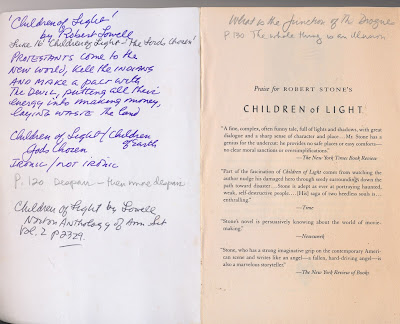 'Children of Light'
by Robert Lowell
Luke 16 'Children of Light – the Lord's Chosen'
PROTESTANTS come to the
NEW WORLD, Kill the INDIANS
AND MAKE a pact with
The DEVIL, putting all their
energy into making money,
laying WASTE the land
Children of Light/Children
of earth
Gods Chosen
IRONIC/NOT IRONIC
P. 120 Despair – then more despair
Children of Light by Lowell
Norton Anthology of Am Lit
Vol. 2 P 2729.
What is the function of The Drogues
P 130 The whole thing is an illusion
Praise for ROBERT STONE'S
CHILDREN of LIGHT
"A fine, complex, often funny tale, full of lights and shadows, with great
dialogue and a sharp sense of character and place... Mr. Stone has a
genius for the undercut: he provides no safe places or easy comforts—
no clear moral sanctions or oversimplifications."
—The New York Times Book Review
"Part of the fascination of Children of Light comes from watching the
author nudge his damaged hero through seedy surroundings down the
path toward disaster.... Stone is adept as ever at portraying haunted,
weak, self-destructive people.... [His] saga of two heedless souls is
enthralling."
—Time
"Stone's novel is persuasively knowing about the world of movie-
making."
—Newsweek
"Stone, who has a strong imaginative grip on the contemporary Ameri-
can scene and writes like an angel—a fallen, hard-driving angel—is
also a marvelous storyteller."
—The New York Review of Books